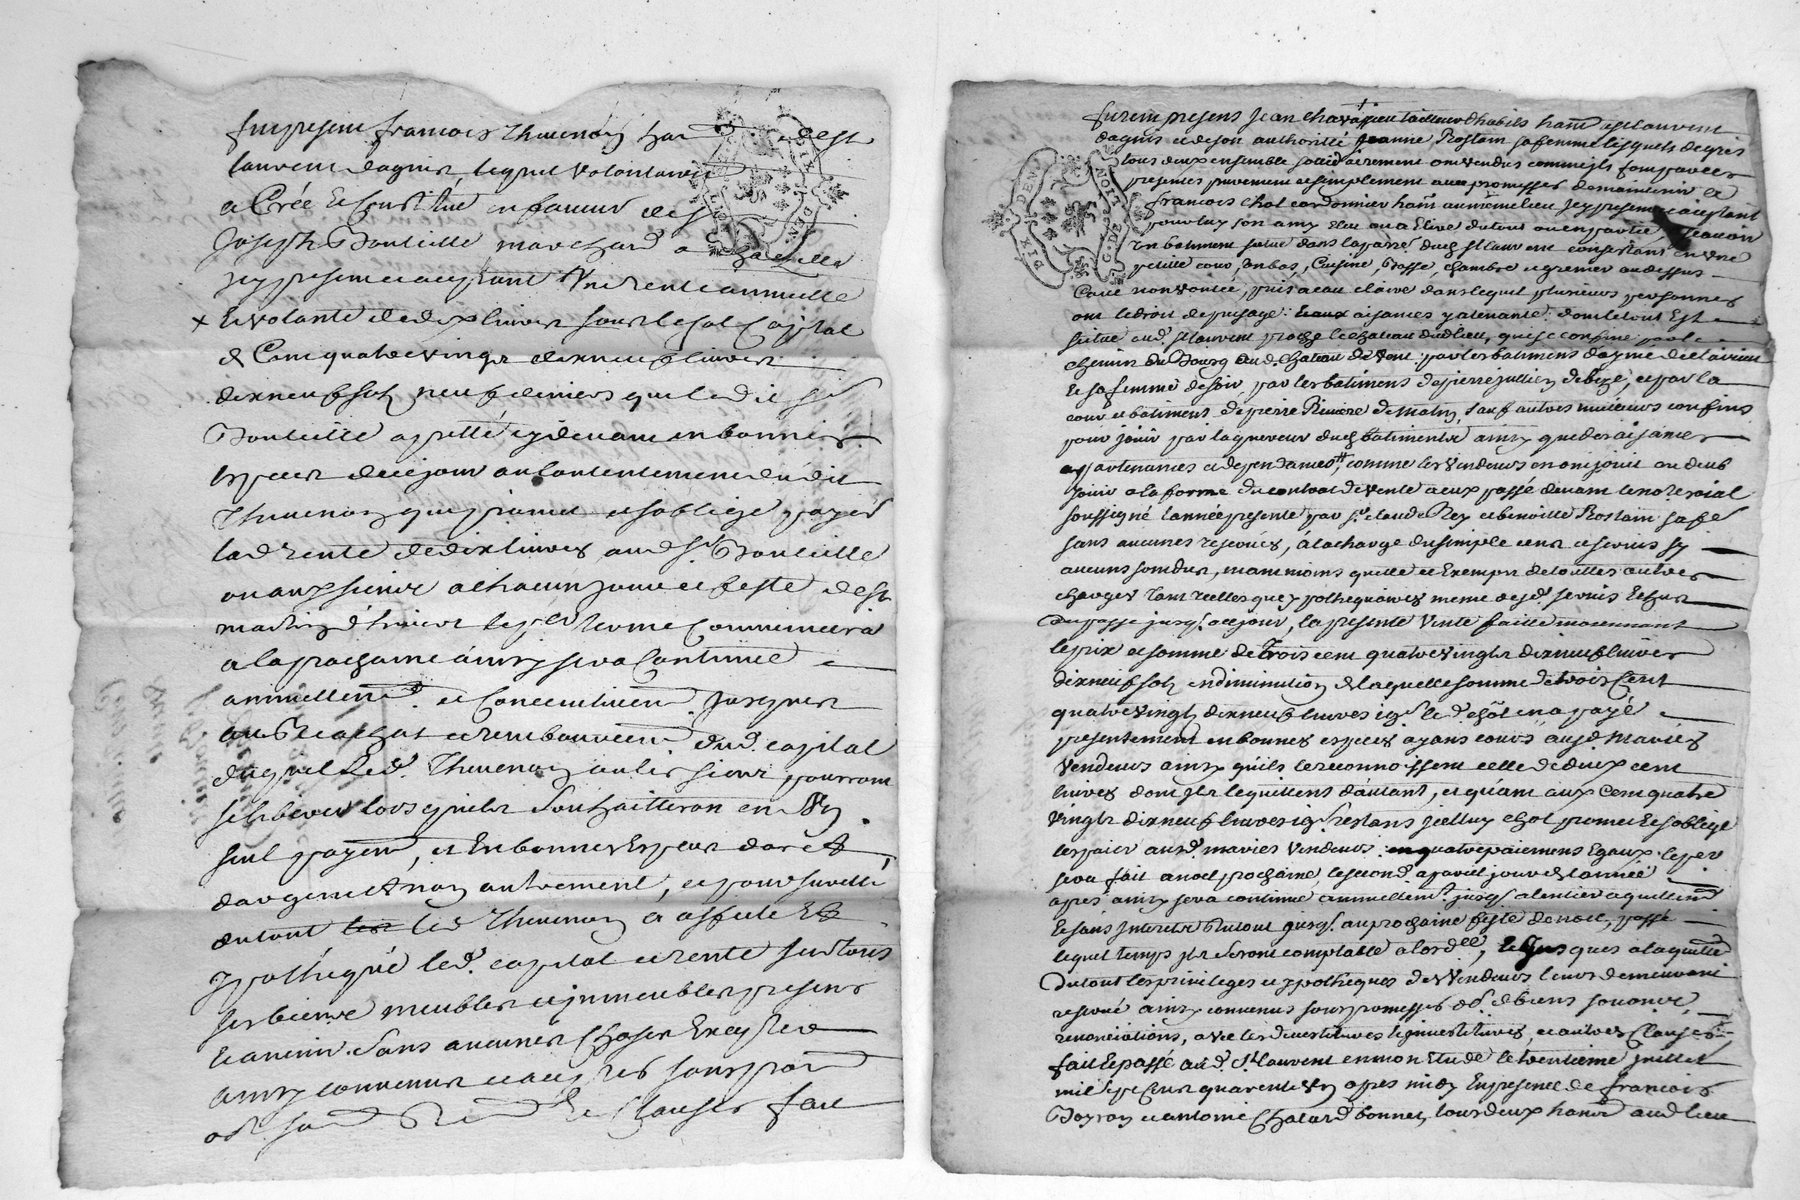 fut present francois Thevenon hant a st
laurent dagnis, lequel volontairemt
a Créé et constitué en faveur de sr
Joseph Bouteille marchand a
icy present et acceptant Une rente annuelle
x et volante de dix livres sous le sol capital
de Cent quatrevingt dixneuf livres
dixneuf sols neuf deniers que le dit sr
Bouteille a presté cydevant en bonnes
especes de ce jour au contentement du dit
Thevenon qui promet et soblige payer
lad rente de dix livres aud sr Bouteille
ou aux siens a chacun jour et feste de st
martin d'hiver le pr terme commencera
a la prochaine ainsy sera continué
annuellemt et consecutivemt jusques
au Rachat et remboursemt dud capital
duquel led Thevenon ou les siens pourront
se liberer lors quils souhaitteront en Un
seul payemt, et En bonnes Especes dor et
dargent et non autrement, et pour sureté
du tout led Thevenon a affecté Et
ypothequé led capital et rente sur tous
ses biens meubles et immeubles presens
et avenir sans aucunes choses Exceptées
ainsy convenu et accepté sous prom
obl soum R et Clauses fait
furent presens Jean Chavassieu tailleur dhabits hant a st laurent
dagnis et de son authorité Jeanne Rostain sa femme lesquels de gré
tous deux ensemble solidairement ont vendus comme ils font par ces
presentes purement et simplement avec promesses de maintenir a
francois Chol cordonnier hant au meme lieu icy present et acceptant
pour luy son amy Eleu ou a Elire du tout ou en partie, scavoir
Un batiment situé dans la parre dud st laurent consistant en une
petitte cour, en bas, Cuisine, Basse, chambre et grenier au dessus
Cave non voutée, puis a eau claire dans lequel plusieurs personnes
ont le droit de puisage, et aux aisances y atenante, dont le tout Est
situé aud st laurent proche le chateau dud lieu, qui se confine par le
chemin du Bourg aud chateau de vent par les batimens d'ayme
et sa femme de soir par les batimens de pierre jullien de bize, et par la
cour et batiment de pierre Riviere de matin, sauf autres meilleurs confins
pour jouir par laquereur dud batiment ainsy que des aisances
appartenances et dependances, comme les vendeurs en ont jouit ou deub
jouir a la forme du contrat de vente a eux passé devant le nore roial
soussigné lannée presente par sr claude Rey et benoitte Rostain sa fe
sans aucunes reserves, a la charge du simple cens et servis sy
aucuns sont dus, neantmoins quitte et Exempt de touttes autres
charges tant reelles que ypothequaires meme desd servis Echus
du passé jusqu a ce jour, la presente vente faitte moiennant
le prix et somme de Trois cent quatrevingts dixneuf livres
dixneuf sols en diminution de laquelle somme de trois Cent
quatrevingts dixneuf livres 19s led chol en a payé
presentement en bonnes especes ayans cours ausd mariés
vendeurs ainsy quils le reconnoissent celle de deux cent
livres dont ils le quittent d'autant, et quant aux Cent quatre
vingts dixneuf livres 19s restans icelluy chol promet et soblige
les paier ausd mariés vendeurs en quatre paiemens Egaux le per
sera fait a noel prochaine le second a pareil jour de lannée
apres ainsy sera continué annuellemt jusqu a lentier aquittemt
et sans Interets du tout jusqu au prochaine feste de noel, passé
lequel temps ils seront comptable a lordce, et jusques a laquitte
du tout les privileges et ypotheques des vendeurs leurs demeurent
reservé ainsy convenus sous promesses obl de biens soumis
renonciations, avec les devestitures et investitures, et autres Clauses
fait et passé aud St laurent en mon etude le trentieme juillet
mil sept Cens quarente Un apres midy En presence de francois
Boyron et antoine Chatard bonnet, tous deux hants aud lieu